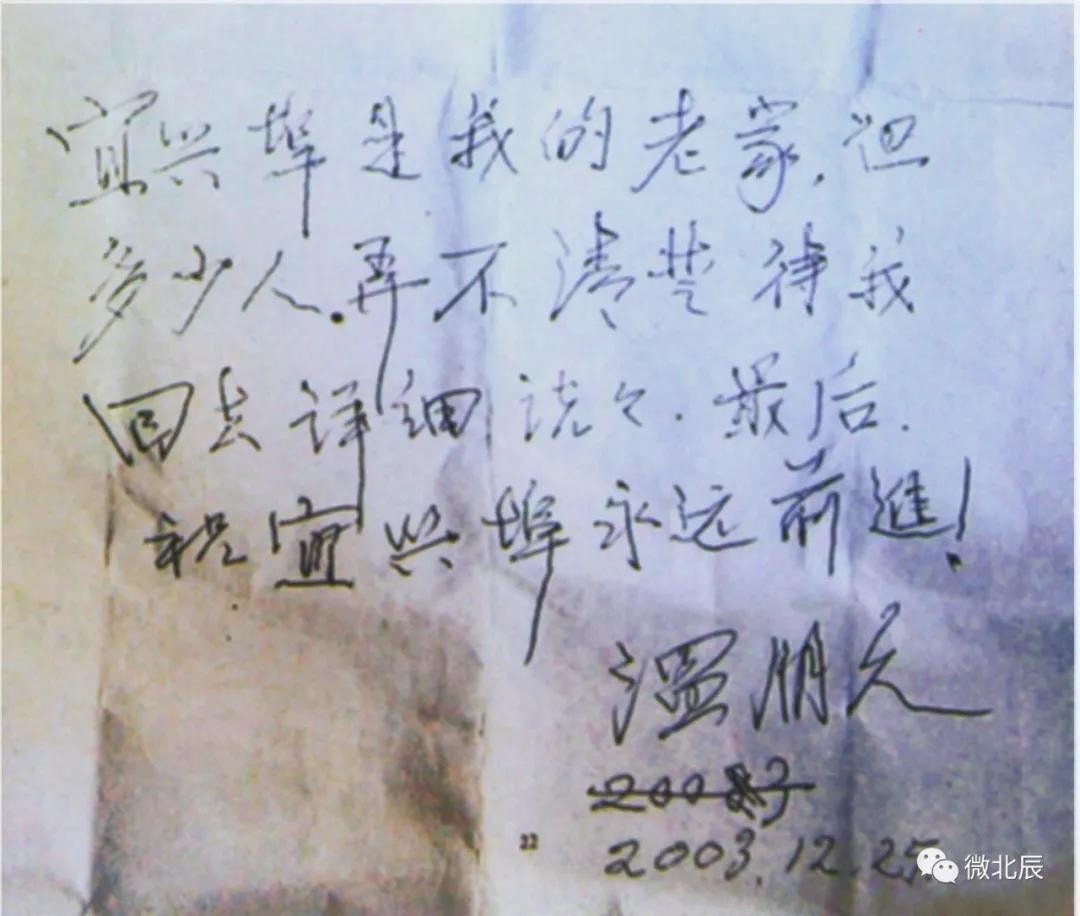 宜兴埠是我的老家,但
多少人.弄不清楚待我
回去详细说々.最后.
祝宜兴埠永远前進!
温朋久
2003
2003.12.25.
22
微北辰